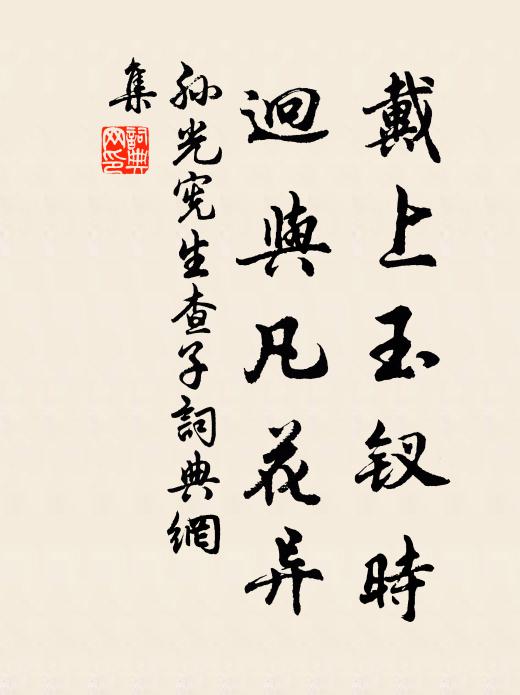 戴上玉钗時
迥與凡花异
孙光宪生查子詞典網
集
詞典
网印